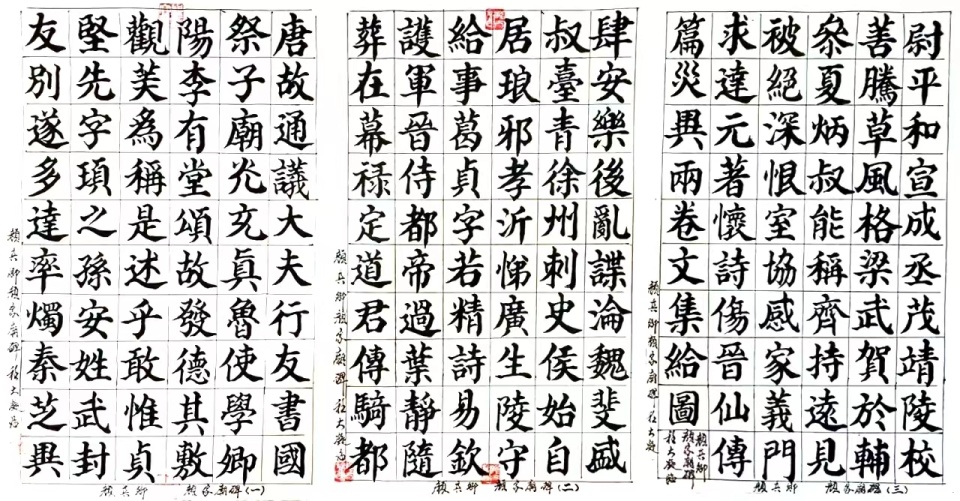 唐故通議大夫行友書國
祭子廟光充真魯使學卿
陽李有堂頌故發德其敷
觀芙為稱是述乎敢惟貞
堅先字項之孫安姓武封
友別遂多達率燭秦芝興
顏真卿顏家廟碑
顏真卿 顏家廟碑(一)
肆安樂後亂諜淪魏斐盛
叔臺青徐州刺史侯始自
居琅邪孝沂悌廣生陵守
給事葛貞字若精詩易欽
護軍晉侍都帝過葉靜隨
葬在幕祿定道君傳騎都
顏真卿顏家廟碑
顏真卿 顏家廟碑(二)
尉平和宣成丞茂靖陵校
善騰草風格梁武賀於輔
叅夏炳叔能稱齊持遠見
被絕深恨室協感家義門
求達元著懷詩傷晉仙傳
篇災異兩卷文集給圖
顏真卿
顏家廟碑
顏真卿顏家廟碑
顏真卿 顏家廟碑(三)